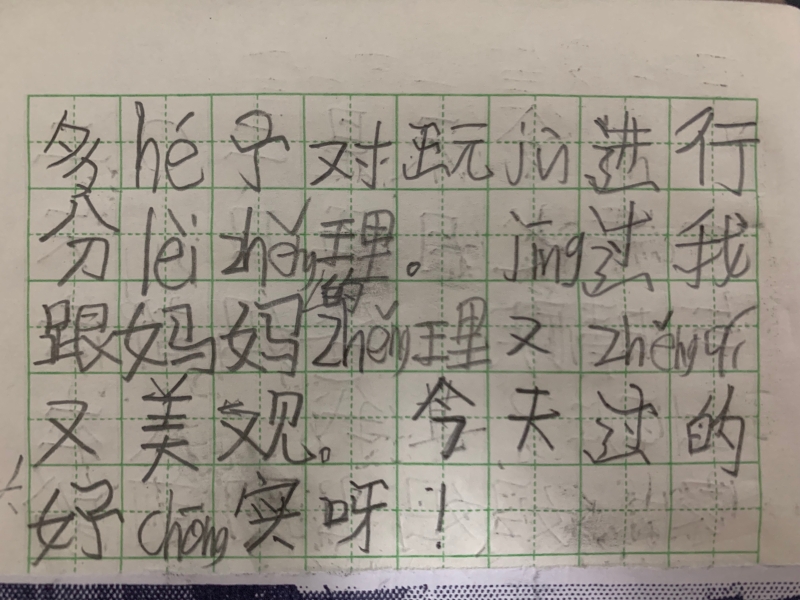 多hé子对玩jù进行
分lèizhěng理。jīng过我
的
跟妈妈zhěng理又zhěngqí
又美观。今天过的
好chōng实呀!